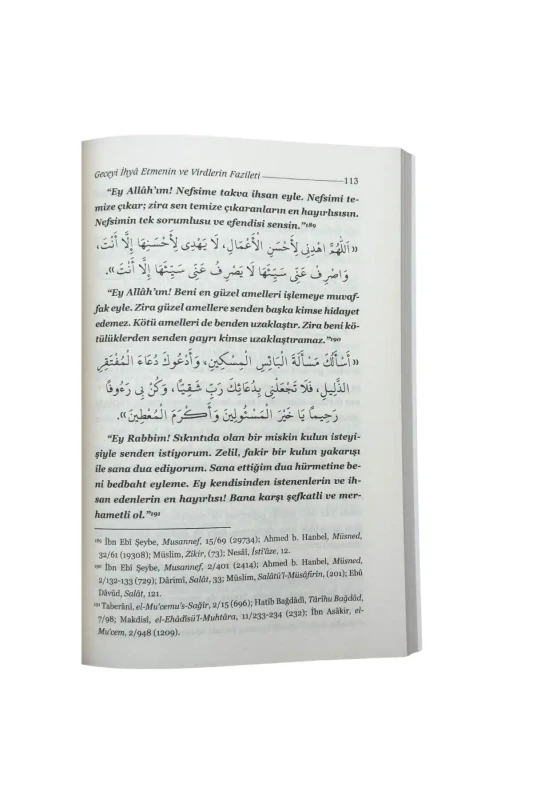 Geceyi İhyâ Etmenin ve Virdlerin Fazileti 113
“Ey Allâh’ım! Nefsime takva ihsan eyle. Nefsimi te-
mize çıkar; zira sen temize çıkaranların en hayırlısısın.
Nefsimin tek sorumlusu ve efendisi sensin.”189
«اَللّٰهُمَّ اهْدِنِي لِأَحْسَنِ الْأَعْمَالِ، لَا يَهْدِى لِأَحْسَنِهَا إِلَّا أَنْتَ،
وَاصْرِفْ عَنِّى سَيِّئَهَا لَا يَصْرِفُ عَنِّى سَيِّئَهَا إِلَّا أَنْتَ».
“Ey Allâh’ım! Beni en güzel amelleri işlemeye muvaf-
fak eyle. Zira güzel amellere senden başka kimse hidayet
edemez. Kötü amelleri de benden uzaklaştır. Zira beni kö-
tülüklerden senden gayrı kimse uzaklaştıramaz.”190
«أَسْأَلُكَ مَسْأَلَةَ الْبَائِسِ الْمِسْكِينِ، وَأَدْعُوكَ دُعَاءَ الْمُفْتَقِرِ
الذَّلِيلِ، فَلَا تَجْعَلْنِى بِدُعَائِكَ رَبِّ شَقِيًّا، وَكُنْ بِى رَءُوفًا
رَحِيمًا يَا خَيْرَ الْمَسْئُولِينَ وَأَكْرَمَ الْمُعْطِينَ».
“Ey Rabbim! Sıkıntıda olan bir miskin kulun isteyi-
şiyle senden istiyorum. Zelil, fakir bir kulun yakarışı
ile sana dua ediyorum. Sana ettiğim dua hürmetine be-
ni bedbaht eyleme. Ey kendisinden istenenlerin ve ih-
san edenlerin en hayırlısı! Bana karşı şefkatli ve mer-
hametli ol.”191
189 İbn Ebî Şeybe, Musannef, 15/69 (29734); Ahmed b. Hanbel, Müsned,
32/61 (19308); Müslim, Zikir, (73); Nesâî, İsti'âze, 12.
190 İbn Ebî Şeybe, Musannef, 2/401 (2414); Ahmed b. Hanbel, Müsned,
2/132-133 (729); Dârimî, Salât, 33; Müslim, Salâtü'l-Müsâfirîn, (201); Ebû
Dâvûd, Salât, 121.
191 Taberânî, el-Mu'cemu's-Sağîr, 2/15 (696); Hatîb Bağdâdî, Târîhu Bağdâd,
7/98; Makdisî, el-Ehâdîsü'l-Muhtâra, 11/233-234 (232); İbn Asâkir, el-
Mu'cem, 2/948 (1209).